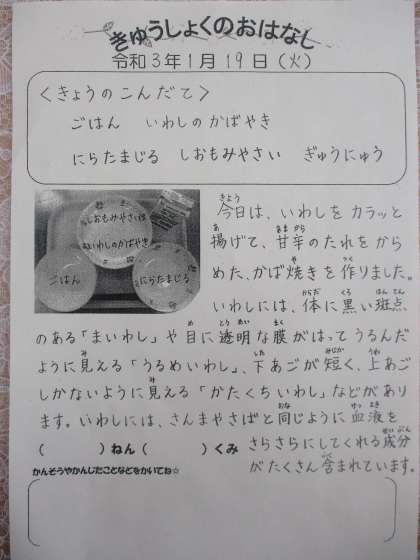 きゅうしょくのおはなし
令和3年1月19日(火)
<きょうのこんだて>
ごはん いわしのかばやき
にらたまじる しおもみやさい ぎゅうにゅう
しおもみやさい
いわしのかばやき
ごはん
にらたまじる
今日は、いわしをカラッと
揚げて、甘辛のたれをから
めた、かば焼きを作りました。
いわしには、体に黒い斑点
のある「まいわし」や目に透明な膜がはってうるんだ
ように見える「うるめいわし」、下あごが短く、上あご
しかないように見える「かたくちいわし」などがあり
ます。いわしには、さんまやさばと同じように血液を
さらさらにしてくれる成分
がたくさん含まれています。
( )ねん( )くみ
かんそうやかんじたことなどをかいてね☆